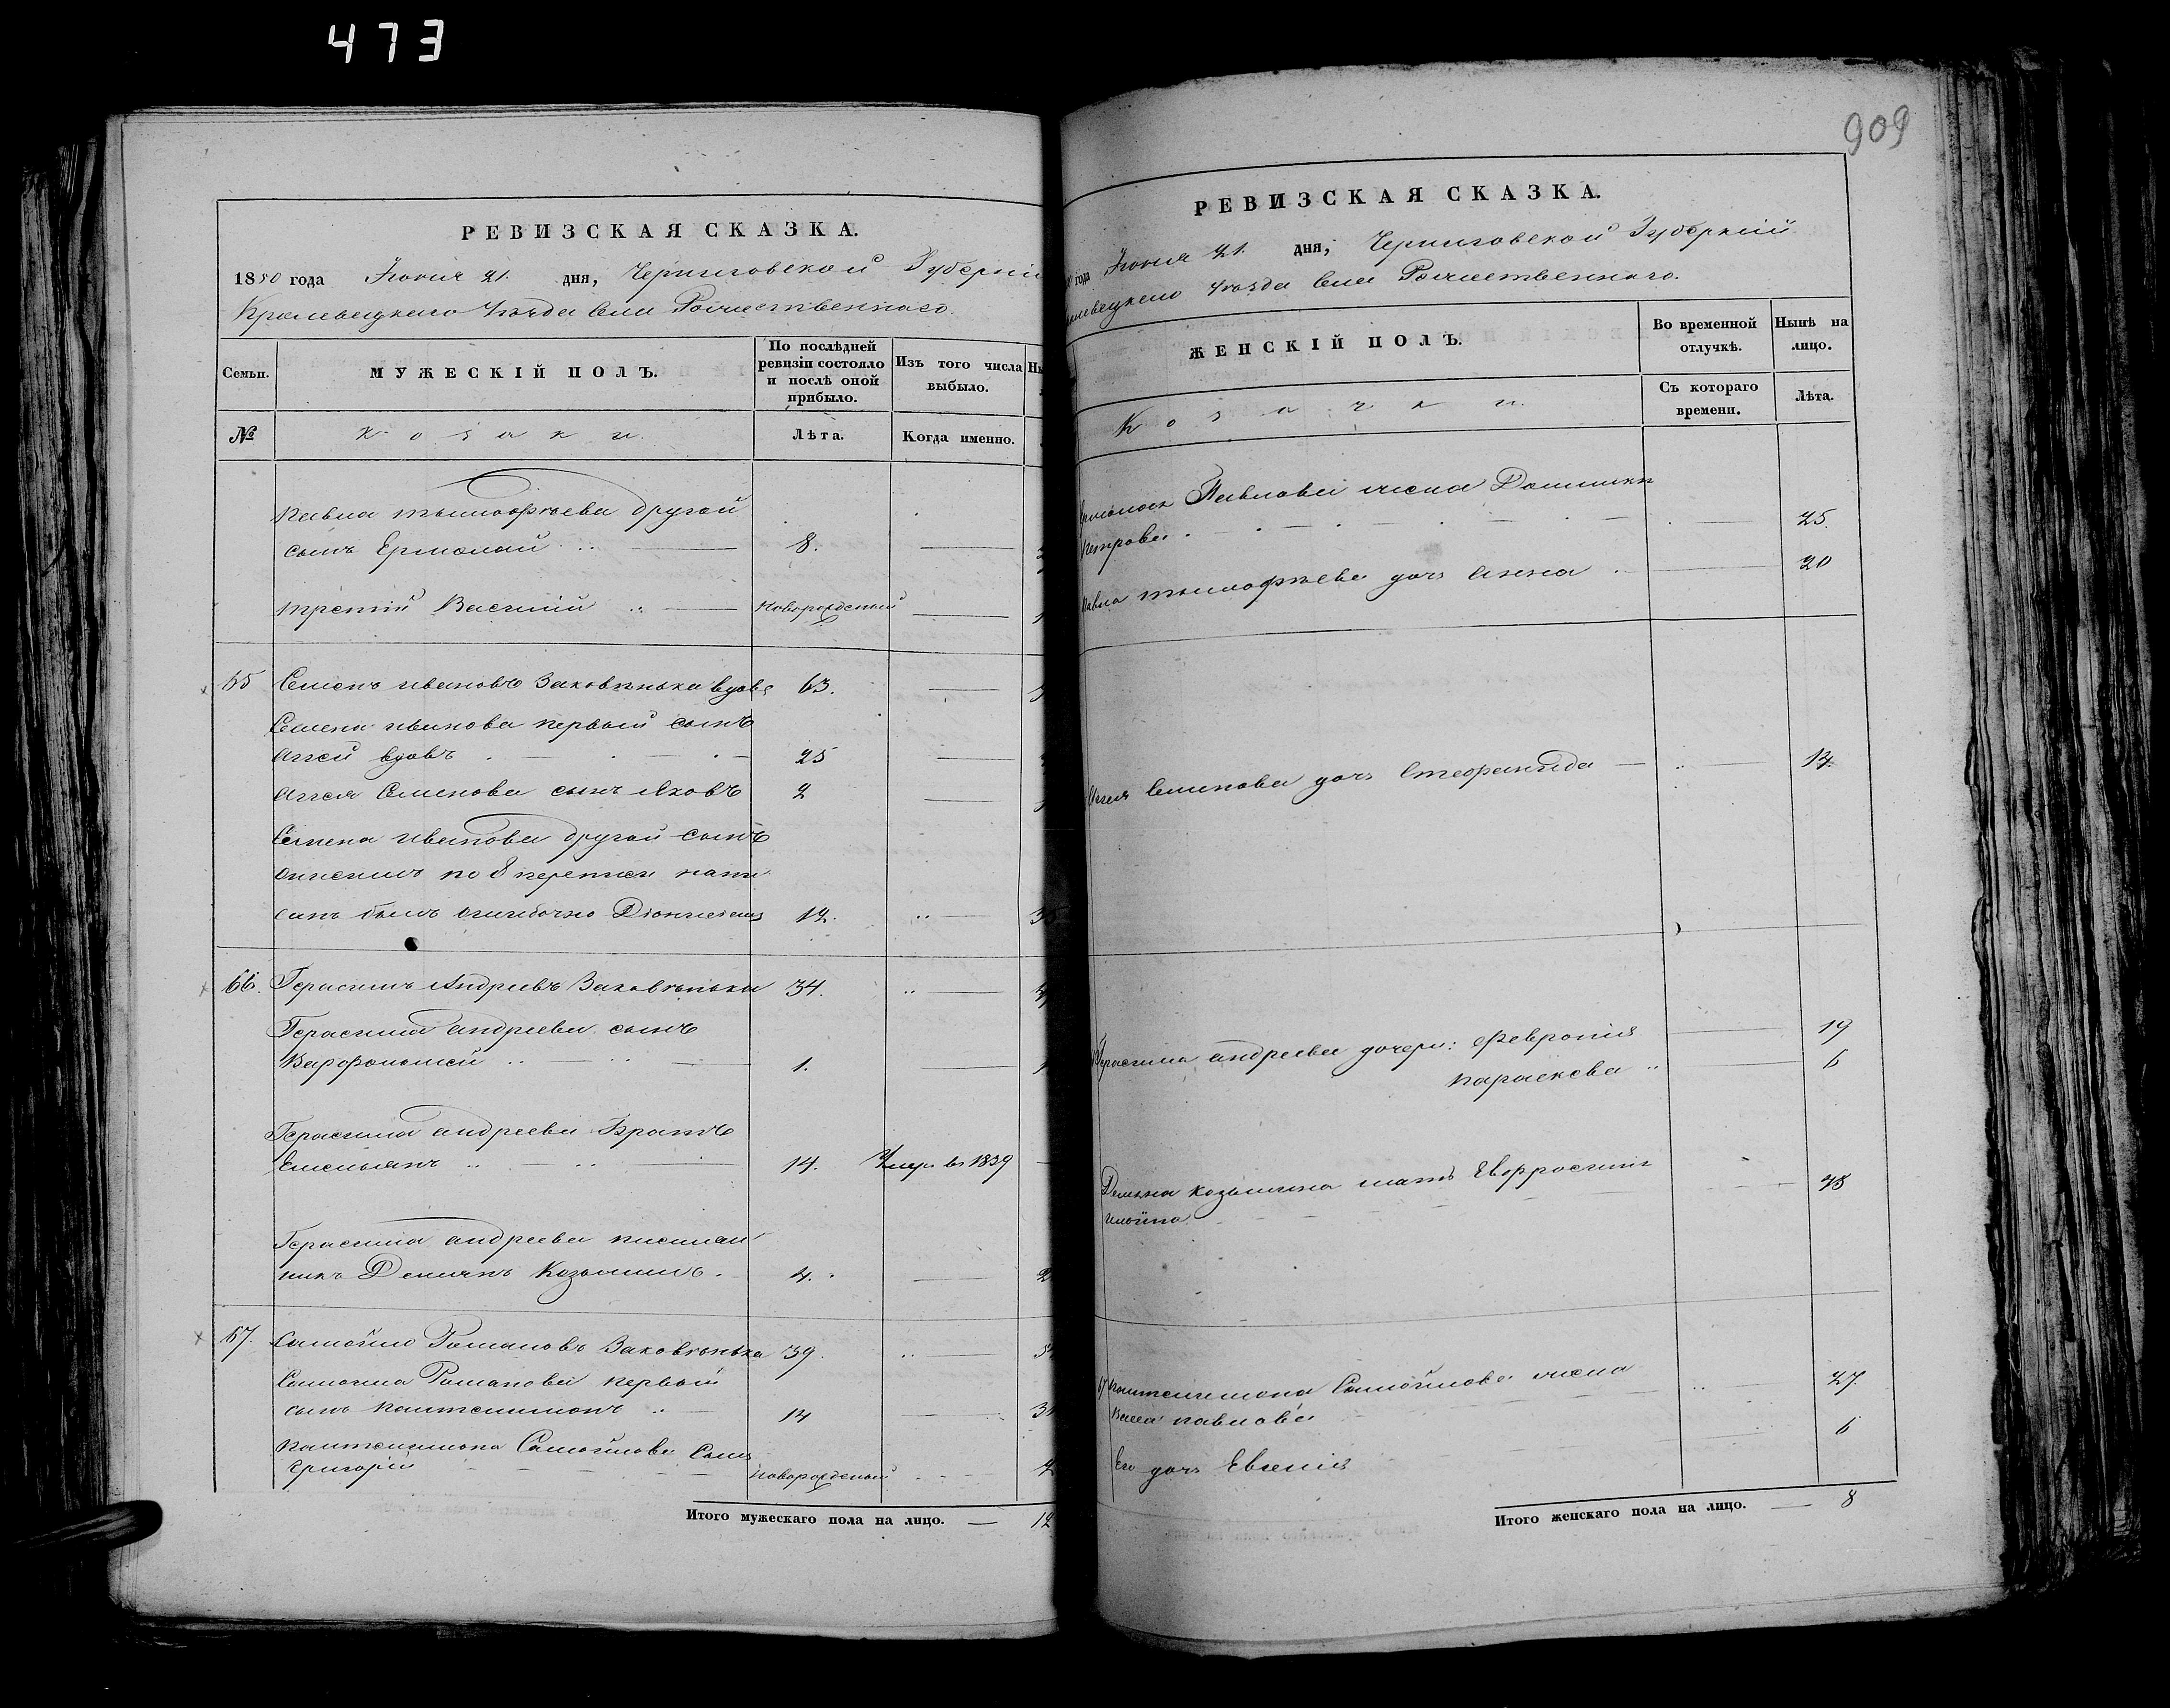 473
РЕВИЗСКАЯ СКАЗКА.
1850 года Іюня 21. дня, Черниговской Губерніи
Кролевецкаго Уѣзда села Рожественнаго.
Семьи. МУЖЕСКІЙ ПОЛЪ. По послѣдней ревизіи состояло и послѣ оной прибыло. Изъ того числа выбыло.
№ Козаки. Лѣта. Когда именно.
Павла Тимофѣева другой
сынъ Ермолай 8.
третій Василій новорожденый
65 Семенъ Ивановъ Заковѣнька вдовъ 63.
Семена Иванова первый сынъ
Аггей вдовъ 25
Аггея Семенова сынъ Яковъ 2
Семена Иванова другой сынъ
Онисимъ по 8 переписи напи
санъ былъ ошибочно Діонисіемъ 12.
66. Герасимъ Андреевъ Заковѣнька 34.
Герасима Андреева сынъ
Варфоломей 1.
Герасима Андреева братъ
Емельянъ 14. Умеръ въ 1839
Герасима Андреева племян
никъ Демьянъ Козьминъ. 4.
67. Самойло Романовъ Заковѣнька 39.
Самойла Романова первый
сынъ Пантелимонъ 14
Пантелимона Самойлова сынъ
Григорій новорожденый
Итого мужескаго пола на лицо. — 12
909
РЕВИЗСКАЯ СКАЗКА.
года Іюня 21. дня, Черниговской Губерніи
Уѣзда села Рожественнаго.
ЖЕНСКІЙ ПОЛЪ. Во временной отлучкѣ. Нынѣ на лицо.
Козачки. Съ котораго времени. Лѣта.
Павлова жена Домникія
Петрова 25.
Павла Тимофѣева дочь Анна 20
Аггея Семенова дочь Стефанида
Герасима Андреева дочери: Февронія 19
Параскева 6
Демьяна Козьмина мать Евфросинія
48
67 Пантелимона Самойлова жена 27.
Васса Павлова
Его дочь Евгенія 6
Итого женскаго пола на лицо. — 8